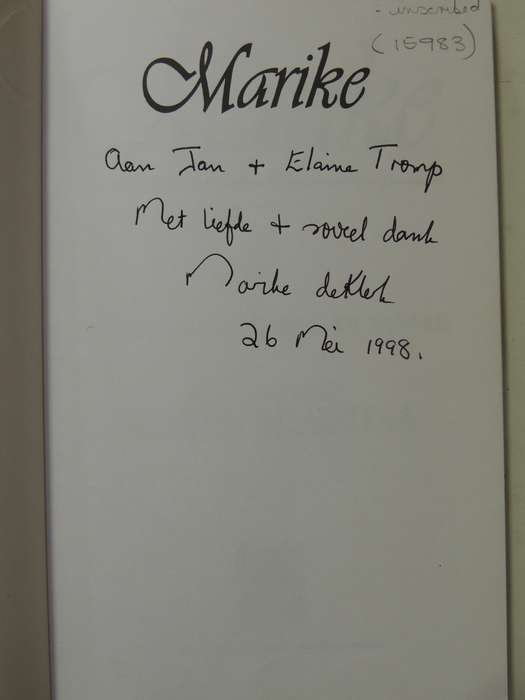 - inscribed
(15983)
Marike
Aan Jan + Elaine Tromp
Met liefde + soveel dank
Marike de Klerk
26 Mei 1998.